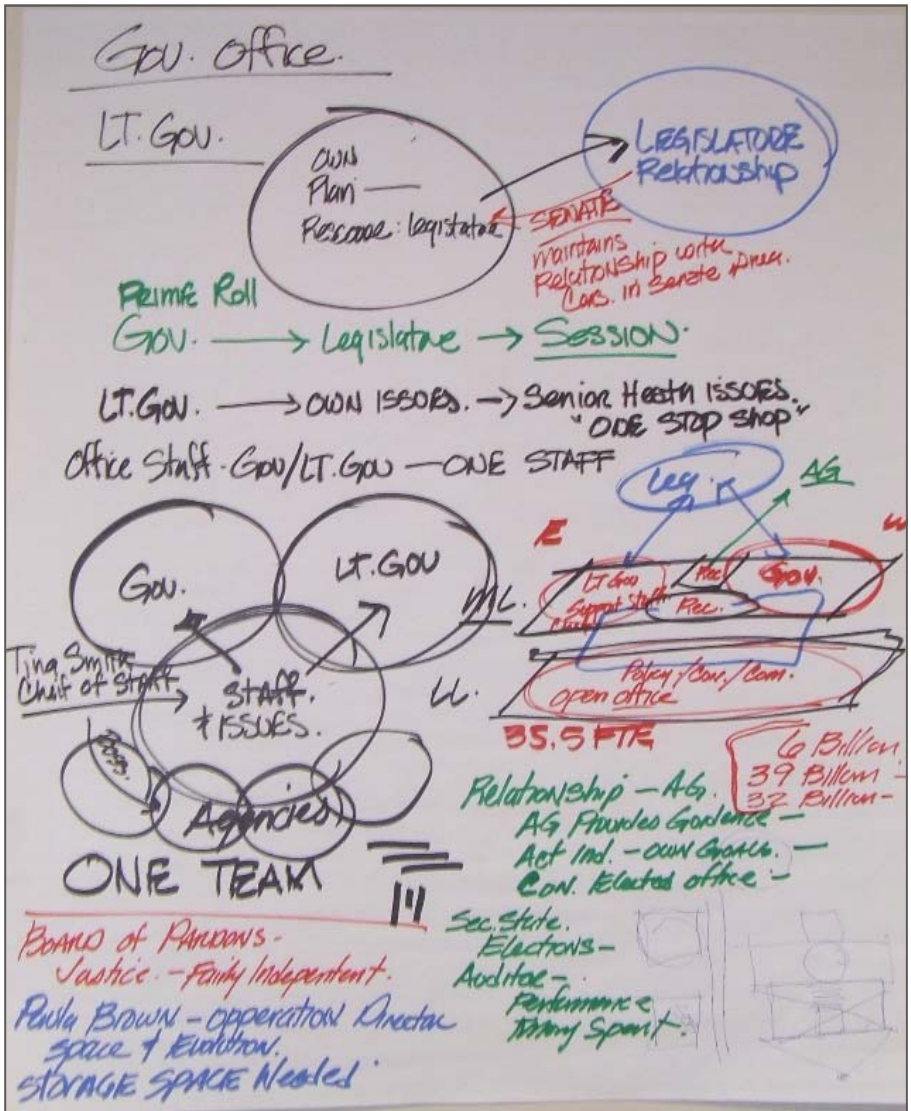 Gov. Office.
LT. Gov.
OWN
Plan —
Rescoode : Legistatue
LEGISLATORE
Relationship
SENATE
maintains
Relationship with
in Senate Area.
PRIME Roll
Gov. → Legislature → SESSION.
LT. Gov. → OWN ISSUES. → Senior Heath ISSUES.
"ONE STOP SHOP"
Office Staff - Gov/LT. Gov — ONE STAFF
Leg.
AG
E
W
Gov.
LT. GOV
LT Gov
Support Staff
Rec
Gov.
Rec.
ML.
Tina Smith
Chaif of Staff
STAFF.
+ ISSUES.
LL.
Policy / Con. / Com.
open office
35.5 FTE
6 Billion
39 Billion -
32 Billion -
Agencies
ONE TEAM
Relationship - AG.
AG Provides Gordence -
Act Ind. - OWN GOALS. -
Con. Elected office -
Sec. State.
Elections -
Auditor -.
Performance
Money Spent.
BOARD of PARDONS -
Justice. - Fairly Independent.
Paula Brown - opperation Director
Space & Evolution.
STORAGE SPACE Needed